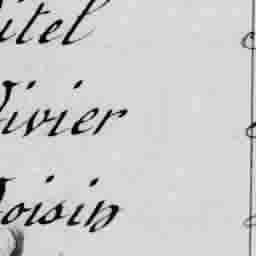 itel
Vivier
Voisin